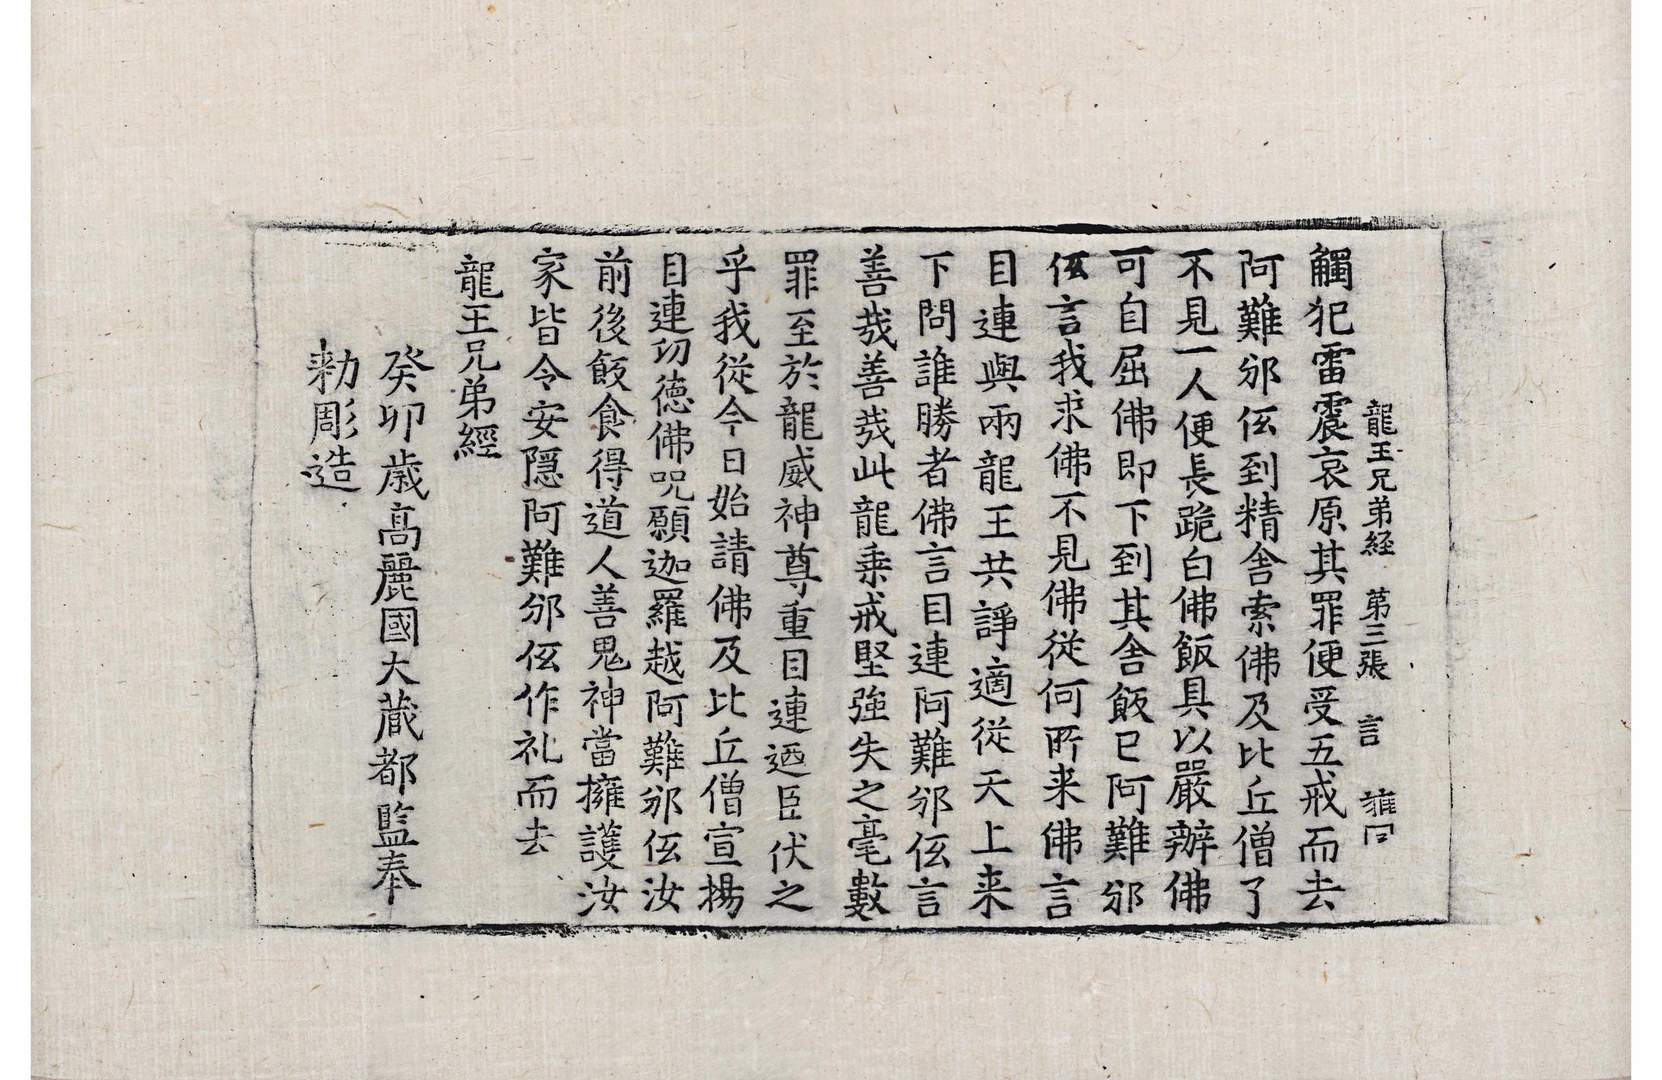 龍王兄弟経 第三張 言
觸犯雷震哀原其罪便受五戒而去
阿難邠伭到精舍索佛及比丘僧了
不見一人便長跪白佛飯具以嚴辦佛
可自屈佛即下到其舍飯已阿難邠
伭言我求佛不見佛從何所来佛言
目連與兩龍王共諍適從天上来
下問誰勝者佛言目連阿難邠伭言
善㢤善㢤此龍乗戒堅強失之毫數
罪至於龍威神尊重目連迺臣伏之
乎我從今日始請佛及比丘僧宣揚
目連㓛德佛呪願迦羅越阿難邠伭汝
前後飯食得道人善鬼神當擁護汝
家皆令安隱阿難邠伭作礼而去
龍王兄弟經
癸卯歳高麗國大蔵都監奉
勑彫造